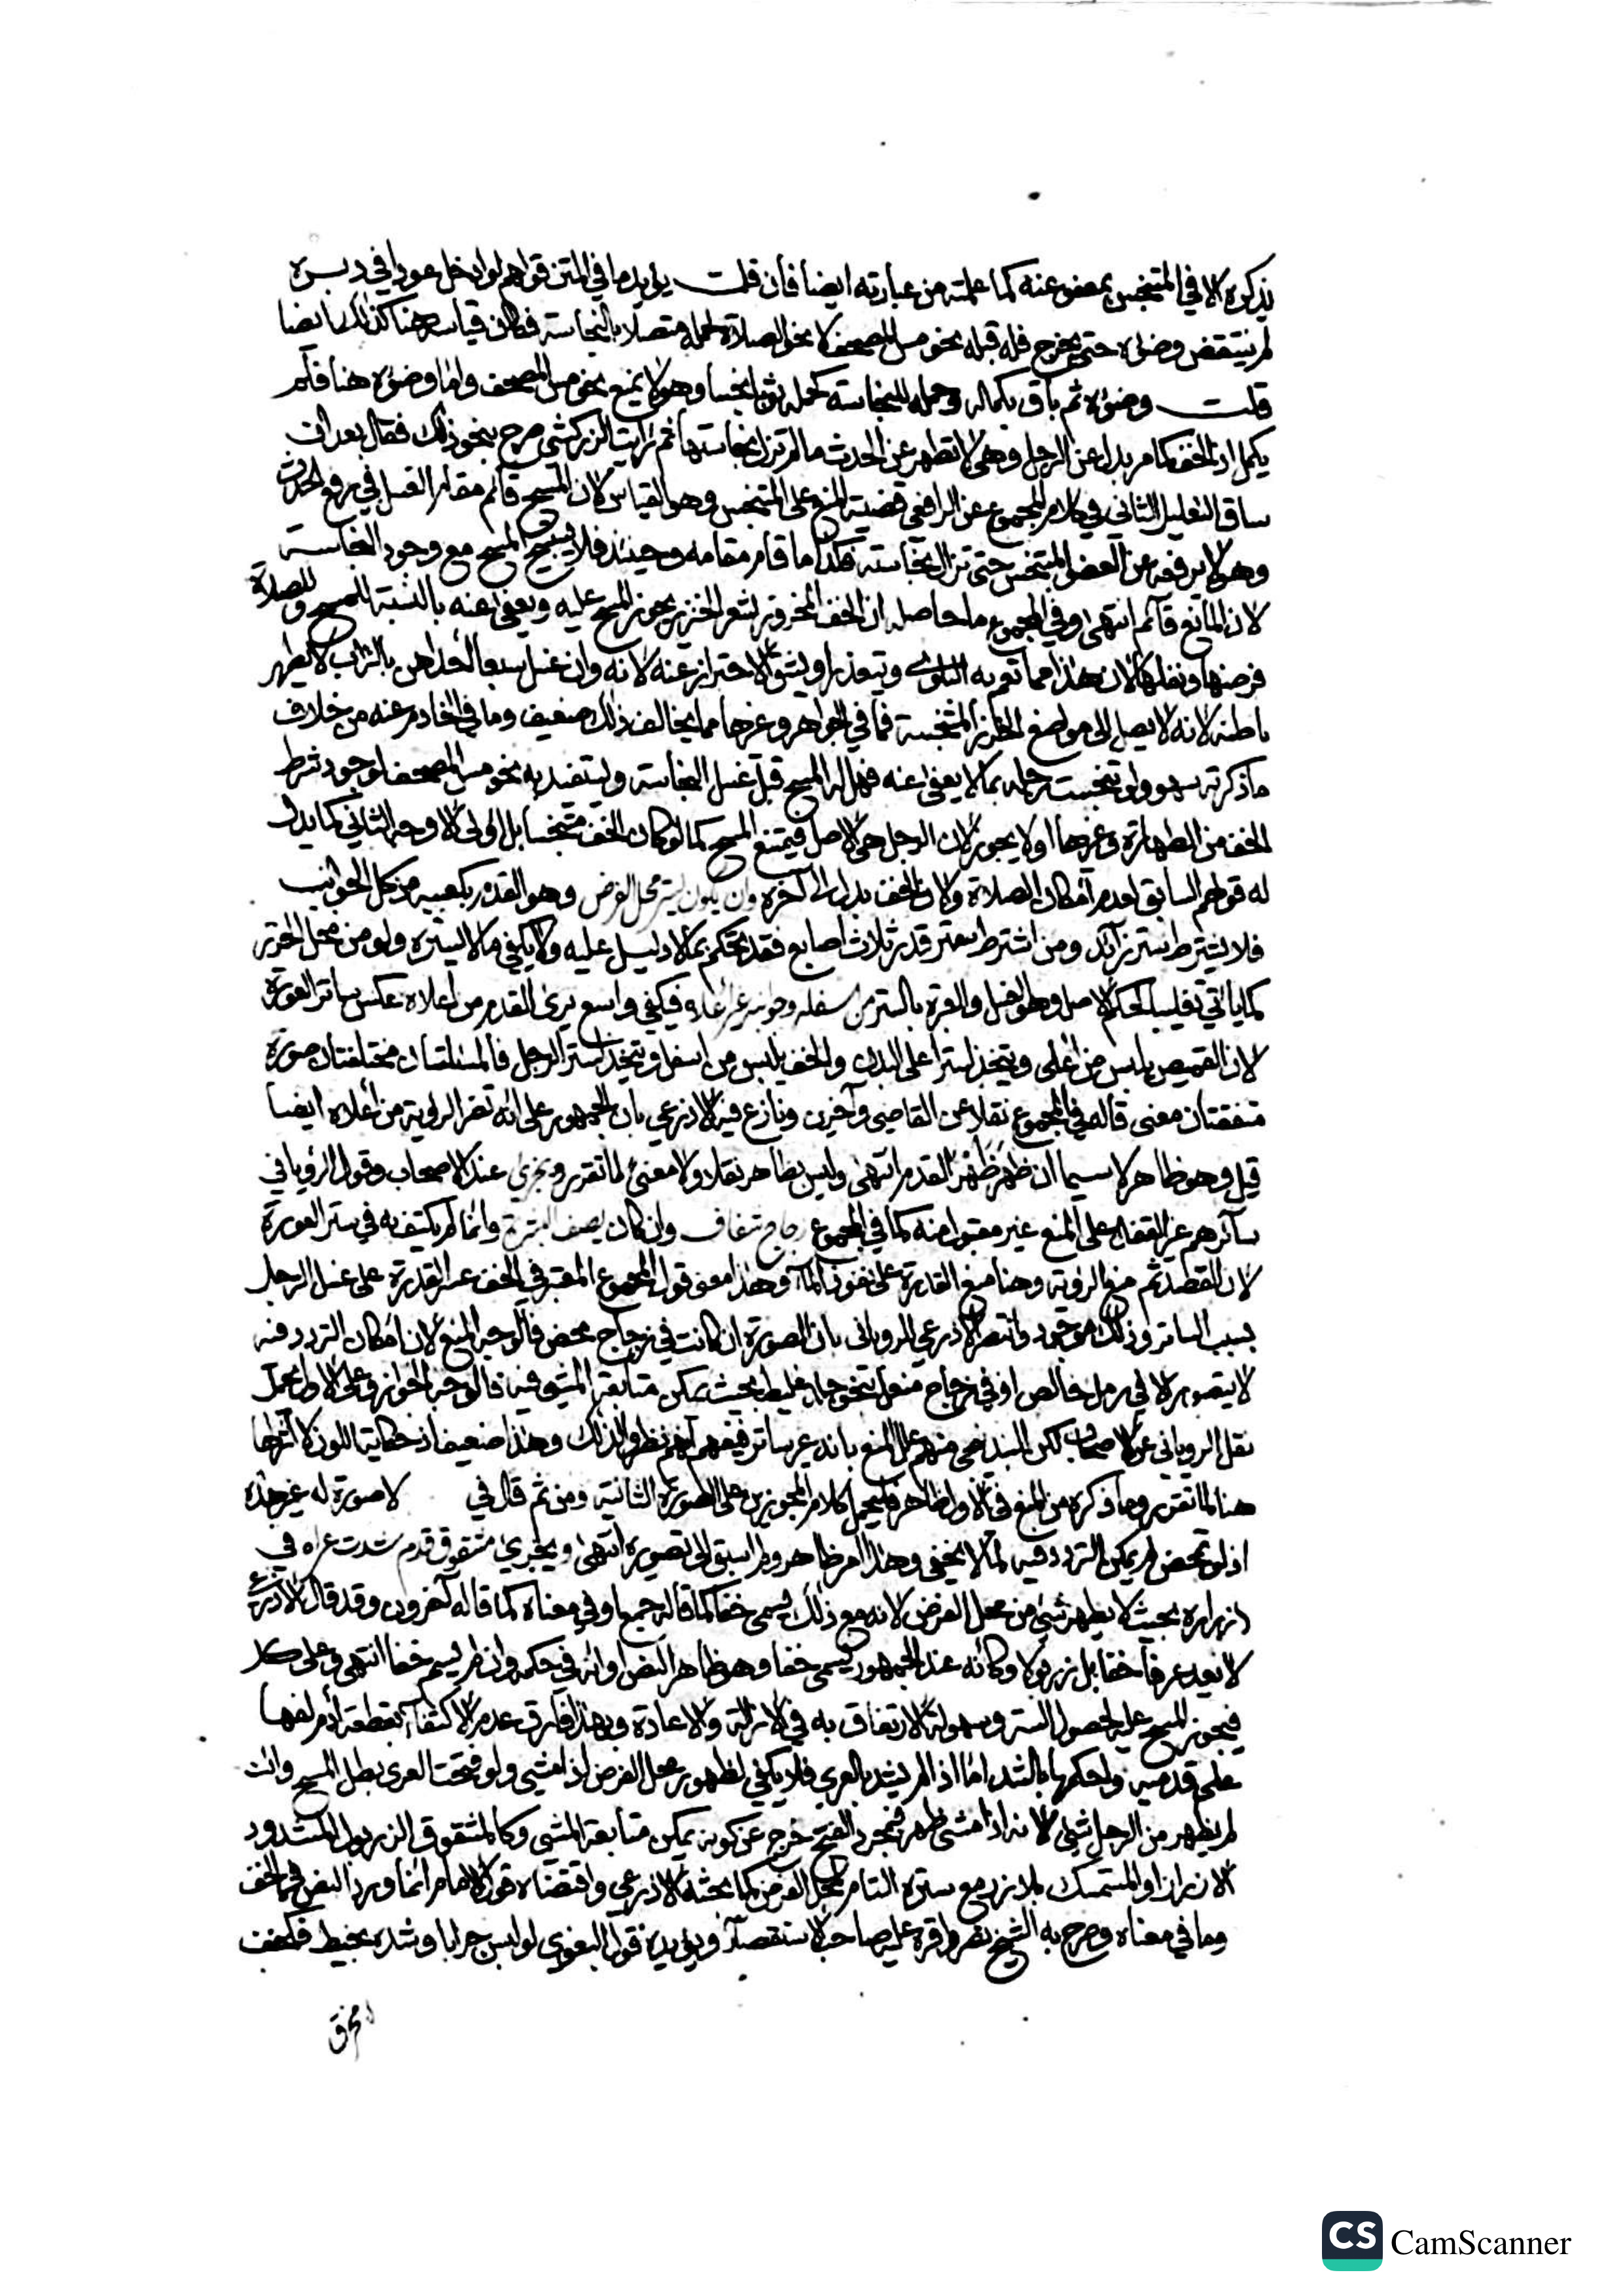 يذكره الا في المتنجس بمعفو عنه كما علمته من عبارته ايضا فان قلت يؤيد ما في المتن قولهم لو ادخل عودا في دبره
لم ينتقض وضوءه حتى يخرج فله قبله نحو مس المصحف لا نحو الصلاة لحمله متصلا بالنجاسة فكان قياسه هنا كذلك ايضا
قلت وضوءه ثم باق بكماله وحمله للنجاسة كحمله ثوبا نجسا وهو لا يمنع نحو مس المصحف واما وضوءه هنا فلم
يكمل اذ الخف كما مر بدل عن الرجل وهي لا تطهر عن الحدث ما لم تزل نجاستها ثم رايت الزركشي صرح بنحو ذلك فقال بعد ان
ساق التعليل الثاني في كلام المجموع عن الرافعي قضيته المنع على المتنجس وهو القياس لان المسح قائم مقام الغسل في رفع الحدث
وهو لا يرفعه عن العضو المتنجس حتى تزال نجاسته فكذا ما قام مقامه وحينئذ فلا يستبيح المسح مع وجود النجاسة
لان المانع قائم انتهى وفي المجموع ما حاصله ان الخف المخروز بشعر الخنزير يجوز المسح عليه ويعفى عنه بالنسبة للمسح وللصلاة
فرضها ونفلها لان هذا مما تعم به البلوى ويتعذر او يشق الاحتراز عنه لانه وان غسل سبعا احداهن بالتراب لا يطهر
باطنه لانه لا يصل الى مواضع الخرز المتنجسة فما في الجواهر وغيرها مما يخالف ذلك ضعيف وما في الخادم عنه من خلاف
ما ذكرته سهو ولو تنجست رجله بما لا يعفى عنه فهل له المسح قبل غسل النجاسة وليستفيد به نحو مس المصحف لوجود شرط
الخف من الطهارة وغيرها او لا يجوز لان الرجل هي الاصل فيمتنع المسح كما لو كان الخف متنجسا بل اولى الاوجه الثاني كما يدل
له قولهم السابق لعدم امكان الصلاة ولان الخف بدل الى آخره وان يكون يستر محل الفرض وهو القدم بكعبيه من كل الجوانب
فلا يشترط ستر زائد ومن اشترط ستر قدر ثلاث اصابع فقد تحكم بما لا دليل عليه ولا يكفي ما لا يستره ولو من محل الخرز
كما ياتي تغليبا لحكم الاصل وهو الغسل والعبرة بالستر من اسفله وجوانبه غير اعلاه فيكفي واسع يرى القدم من اعلاه عكس ساتر العورة
لان القميص يلبس من اعلى ويتخذ لستر اعلى البدن والخف يلبس من اسفل ويتخذ لستر الرجل فالمسئلتان مختلفتان صورة
متفقتان معنى قاله في المجموع نقلا عن القاضي وآخرين ونازع فيه الاذرعي بان الجمهور على انه تضر الرؤية من اعلاه ايضا
قيل وهو ظاهر لا سيما ان ظهر ظهر القدم انتهى وليس بظاهر نقلا ولا معنى لما تقرر ويجزى عند الاصحاب وقول الروياني
سائرهم غير القفال على المنع غير مقبول منه كما في المجموع زجاج شفاف وان كان يصف البشرة وانما لم يكتف به في ستر العورة
لان القصد ثم منع الرؤية وهنا منع القدرة على نفوذ الماء وهذا معنى قول المجموع المعتبر في الخف عسر القدرة على غسل الرجل
بسبب الساتر وذلك موجود وانتصر الاذرعي للروياني بان الصورة ان كانت في زجاج محض فالوجه المنع لان امكان التردد فيه
لا يتصور الا في رمل خالص او في زجاج منعل بنحو جلد غليظ بحيث يمكن متابعة المشي فيه فالوجه الجواز وعلى الاول يحمل
نقل الروياني عن الاصحاب لكن البندنيجي منهم علل المنع بانه غير ساتر فيفهم انهم نظروا لذلك وهذا ضعيف اذ حكاية اللون لا اثر لها
هنا لما تقرر وما ذكره من المنع في الاولى ظاهر فليحمل كلام المجوزين على الصورة الثانية ومن ثم قال في لا صورة له غير هذه
اذ لو تمحض لم يمكن التردد فيه لما لا يخفى وهذا امر ظاهر ولم اسبق الى تصويره انتهى ويجزى مشقوق قدم شدت عراه في
ازراره بحيث لا يظهر شئ من محل الفرض لانه مع ذلك يسمى خفا كما قاله جمع او في معناه كما قاله آخرون وقد قال الاذرعي
لا يعد عرفا خفا بل زربولا وكانه عند الجمهور يسمى خفا وهو ظاهر النص او انه في حكمه وان لم يسم خفا انتهى وعلى كل
فيجوز المسح عليه لحصول الستر وسهولة الارتفاق به في الازالة والاعادة وبهذا فارق عدم الاكتفاء بقطعة ادم لفها
على قدميه واحكمها بالشد اما اذا لم يشد بالعرى فلا يكفي لظهور محل الفرض اذا مشى ولو فتحت العرى بطل المسح وان
لم يظهر من الرجل شئ لانه اذا مشى ظهر فبمجرد الفتح خرج عن كونه يمكن متابعة المشي وكالمشقوق الزربول المشدود
الازرار او المستمسك بلا زر مع ستره التام لمحل الفرض كما بحثه الاذرعي واقتضاه قول الامام انما ورد النص في الخف
وما في معناه وصرح به الشيخ نصر واقره عليه صاحب الاستقصاء ويؤيده قول البغوي لو لبس جرابا وشده بخيط فكخف
مخرق
CS CamScanner